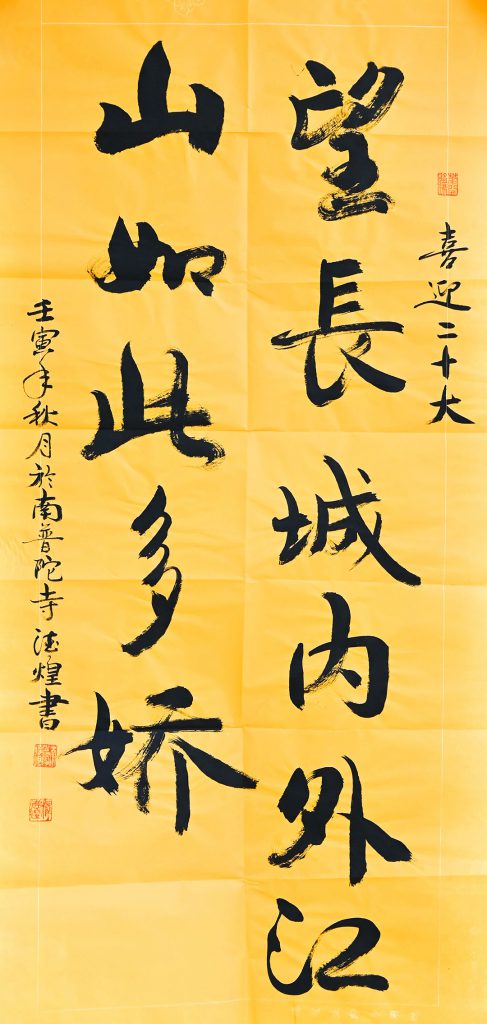 喜迎二十大
望長城内外江
山如此多娇
壬寅年秋月於南普陀寺 法煌書